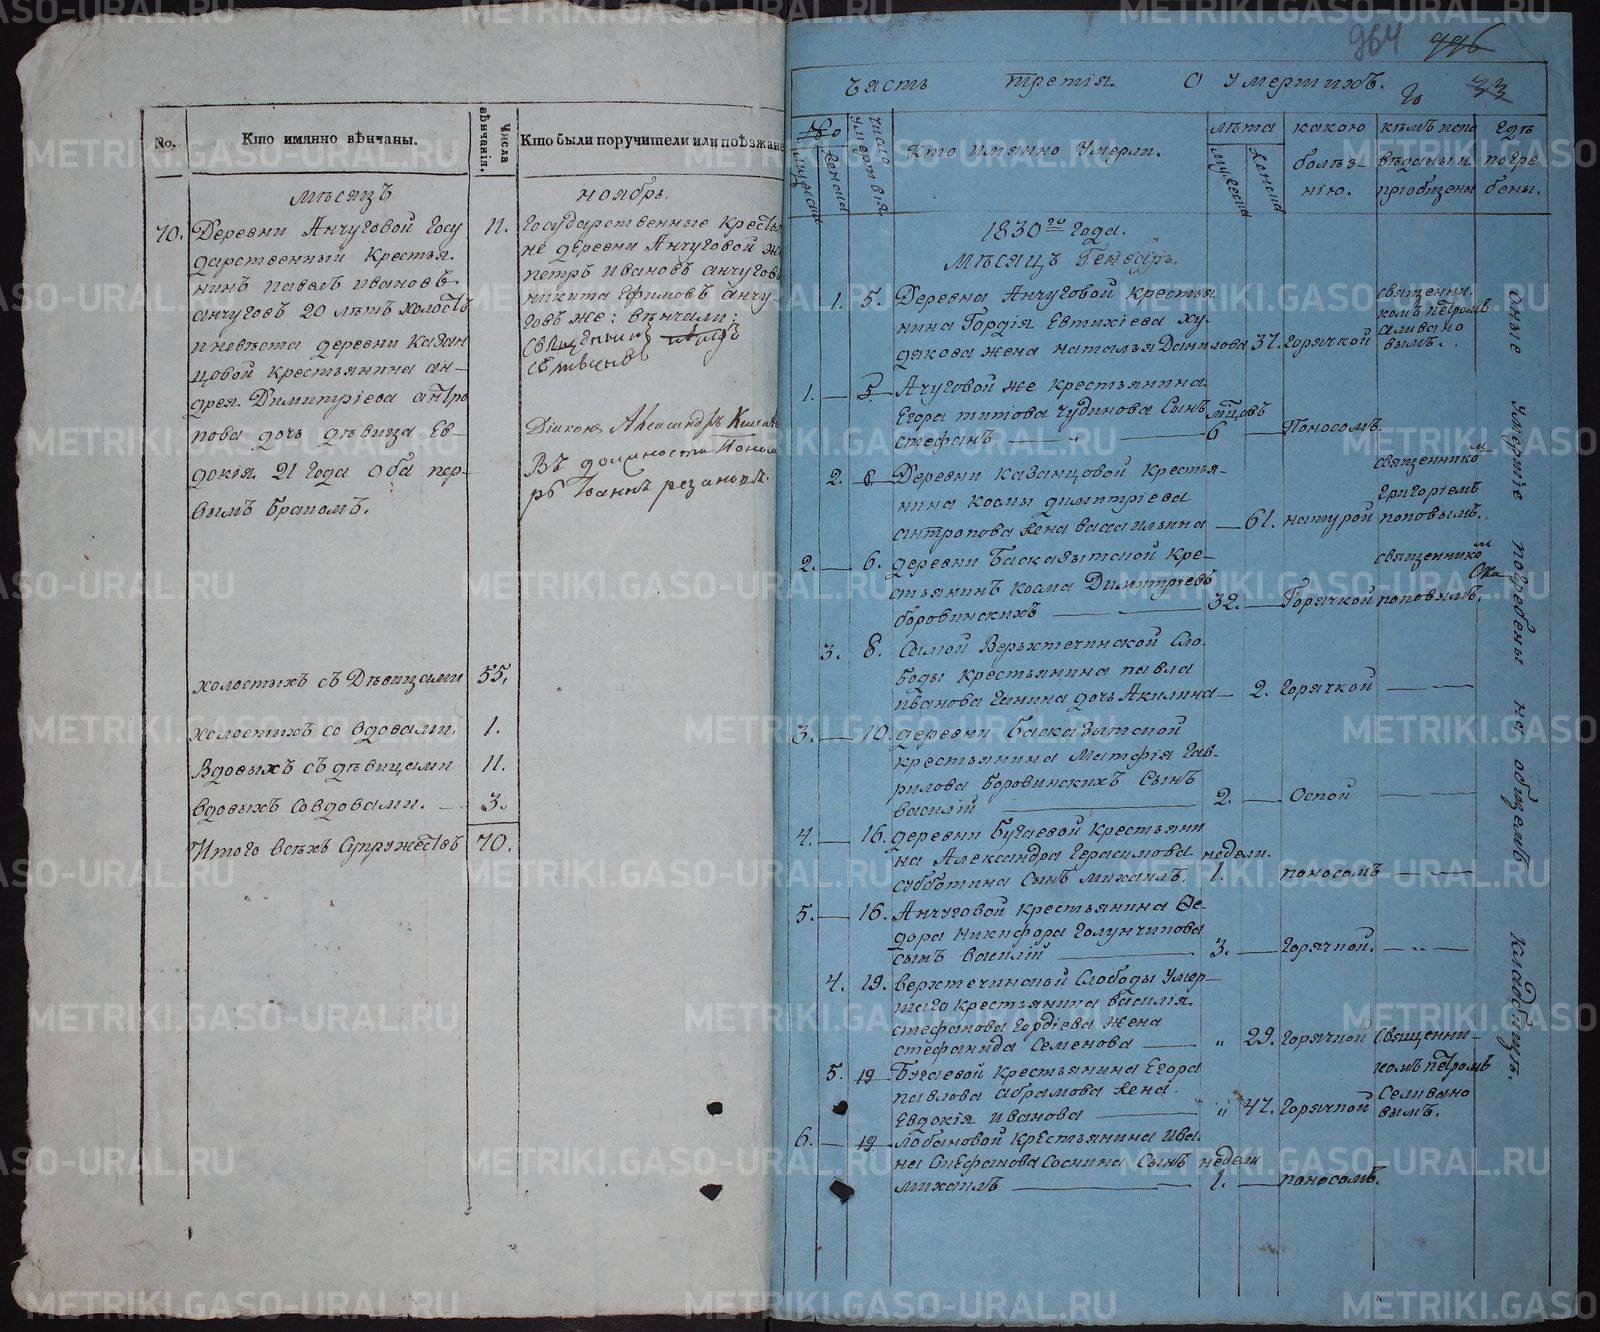 No.
Кто имянно вѣнчаны.
Числа вѣнчанія.
Кто были поручители или поѣзжане
мѣсяцъ
ноябрь.
70. Деревни Анчуговой Госу
дарственный крестья
нинъ павелъ ивановъ
анчуговъ 20 лѣтъ холостъ
и невѣста деревни казан
цовой крестьянина ан-
дрея Димитріева антро
пова дочь дѣвица Ев-
докія 21 года Оба пер-
вымъ бракомъ.
11.
Государственные кресть
не деревни Анчуговой
петръ ивановъ анчугов
никита Ефимовъ анчу
говъ же: вѣнчали:
Діаконъ Александръ
Въ должности
Іоаннъ
холостыхъ съ Дѣвицами 55,
холостыхъ со вдовами, 1.
Вдовыхъ съ дѣвицами 11.
вдовыхъ со вдовами. — 3.
Итого всѣхъ Супружествъ 70.
964 996
Часть третія. О умершихъ.
33
мужеска
женска
Число умертвія
Кто имянно Умерли.
лѣта
мужеска
женска
какою
болѣз-
нію.
кѣмъ испо
вѣданы и
пріобщены
Гдѣ
погре
бены.
1830го Года.
Мѣсяцъ Генварь.
1. 5. Деревни Анчуговой крестья
нина Гордія Евтихіева ху-
дякова жена наталья Данилова 37. Горячкой
священни
комъ петромъ
селивано
вымъ.
1. — 5. Ачуговой же крестьянина
Егора титова чудинова Сынъ мѣсцовъ
стефанъ — 6 — Поносомъ
2. 6. Деревни казанцовой кресть-
нина космы димитріева
антропова жена васса ильина — 61. натурой
священником
григоріемъ
поповымъ.
2. — 6. деревни Баска зытской кре-
стьянинъ косма Димитріевъ
боровинскихъ — 32. — Горячкой
священником
поповымъ.
3. 8. Самой Верьхтечинской Сло
боды крестьянина павла
иванова Ганина дочь Акилина — 2. горячкой — —
3. — 10. деревни Баска зытской
крестьянина Матфія Гав-
рилова боровинскихъ Сынъ
василій — 2. — Оспой — —
4. — 16. деревни Бугаевой крестьяни
на Александра Герасимова недели.
субботина Сынъ михаилъ. 1. поносомъ — —
5. — 16. Анчуговой крестьянина Ѳе-
дора Никифора Голунчикова
сынъ василій — 3. — Горячкой. — „ —
4. 19. верхтечинской Слободы Умер-
таго крестьянина василія
стефанова Гордіева жена
стефанида Семенова — „ 29. Горячкой
Священни-
комъ петромъ
Селивано
вымъ.
5. 19 Бугаевой крестьянина Егора
павлова абрамова жена
Евдокія иванова — „ 47. Горячкой
6. — 19 лобановой крестьянина ива
на Стефанова Соснина Сынъ недели
михаилъ — 1. — поносомъ.
Оные умершіе погребены на общемъ кладбищѣ.
METRIKI.GASO-URAL.RU